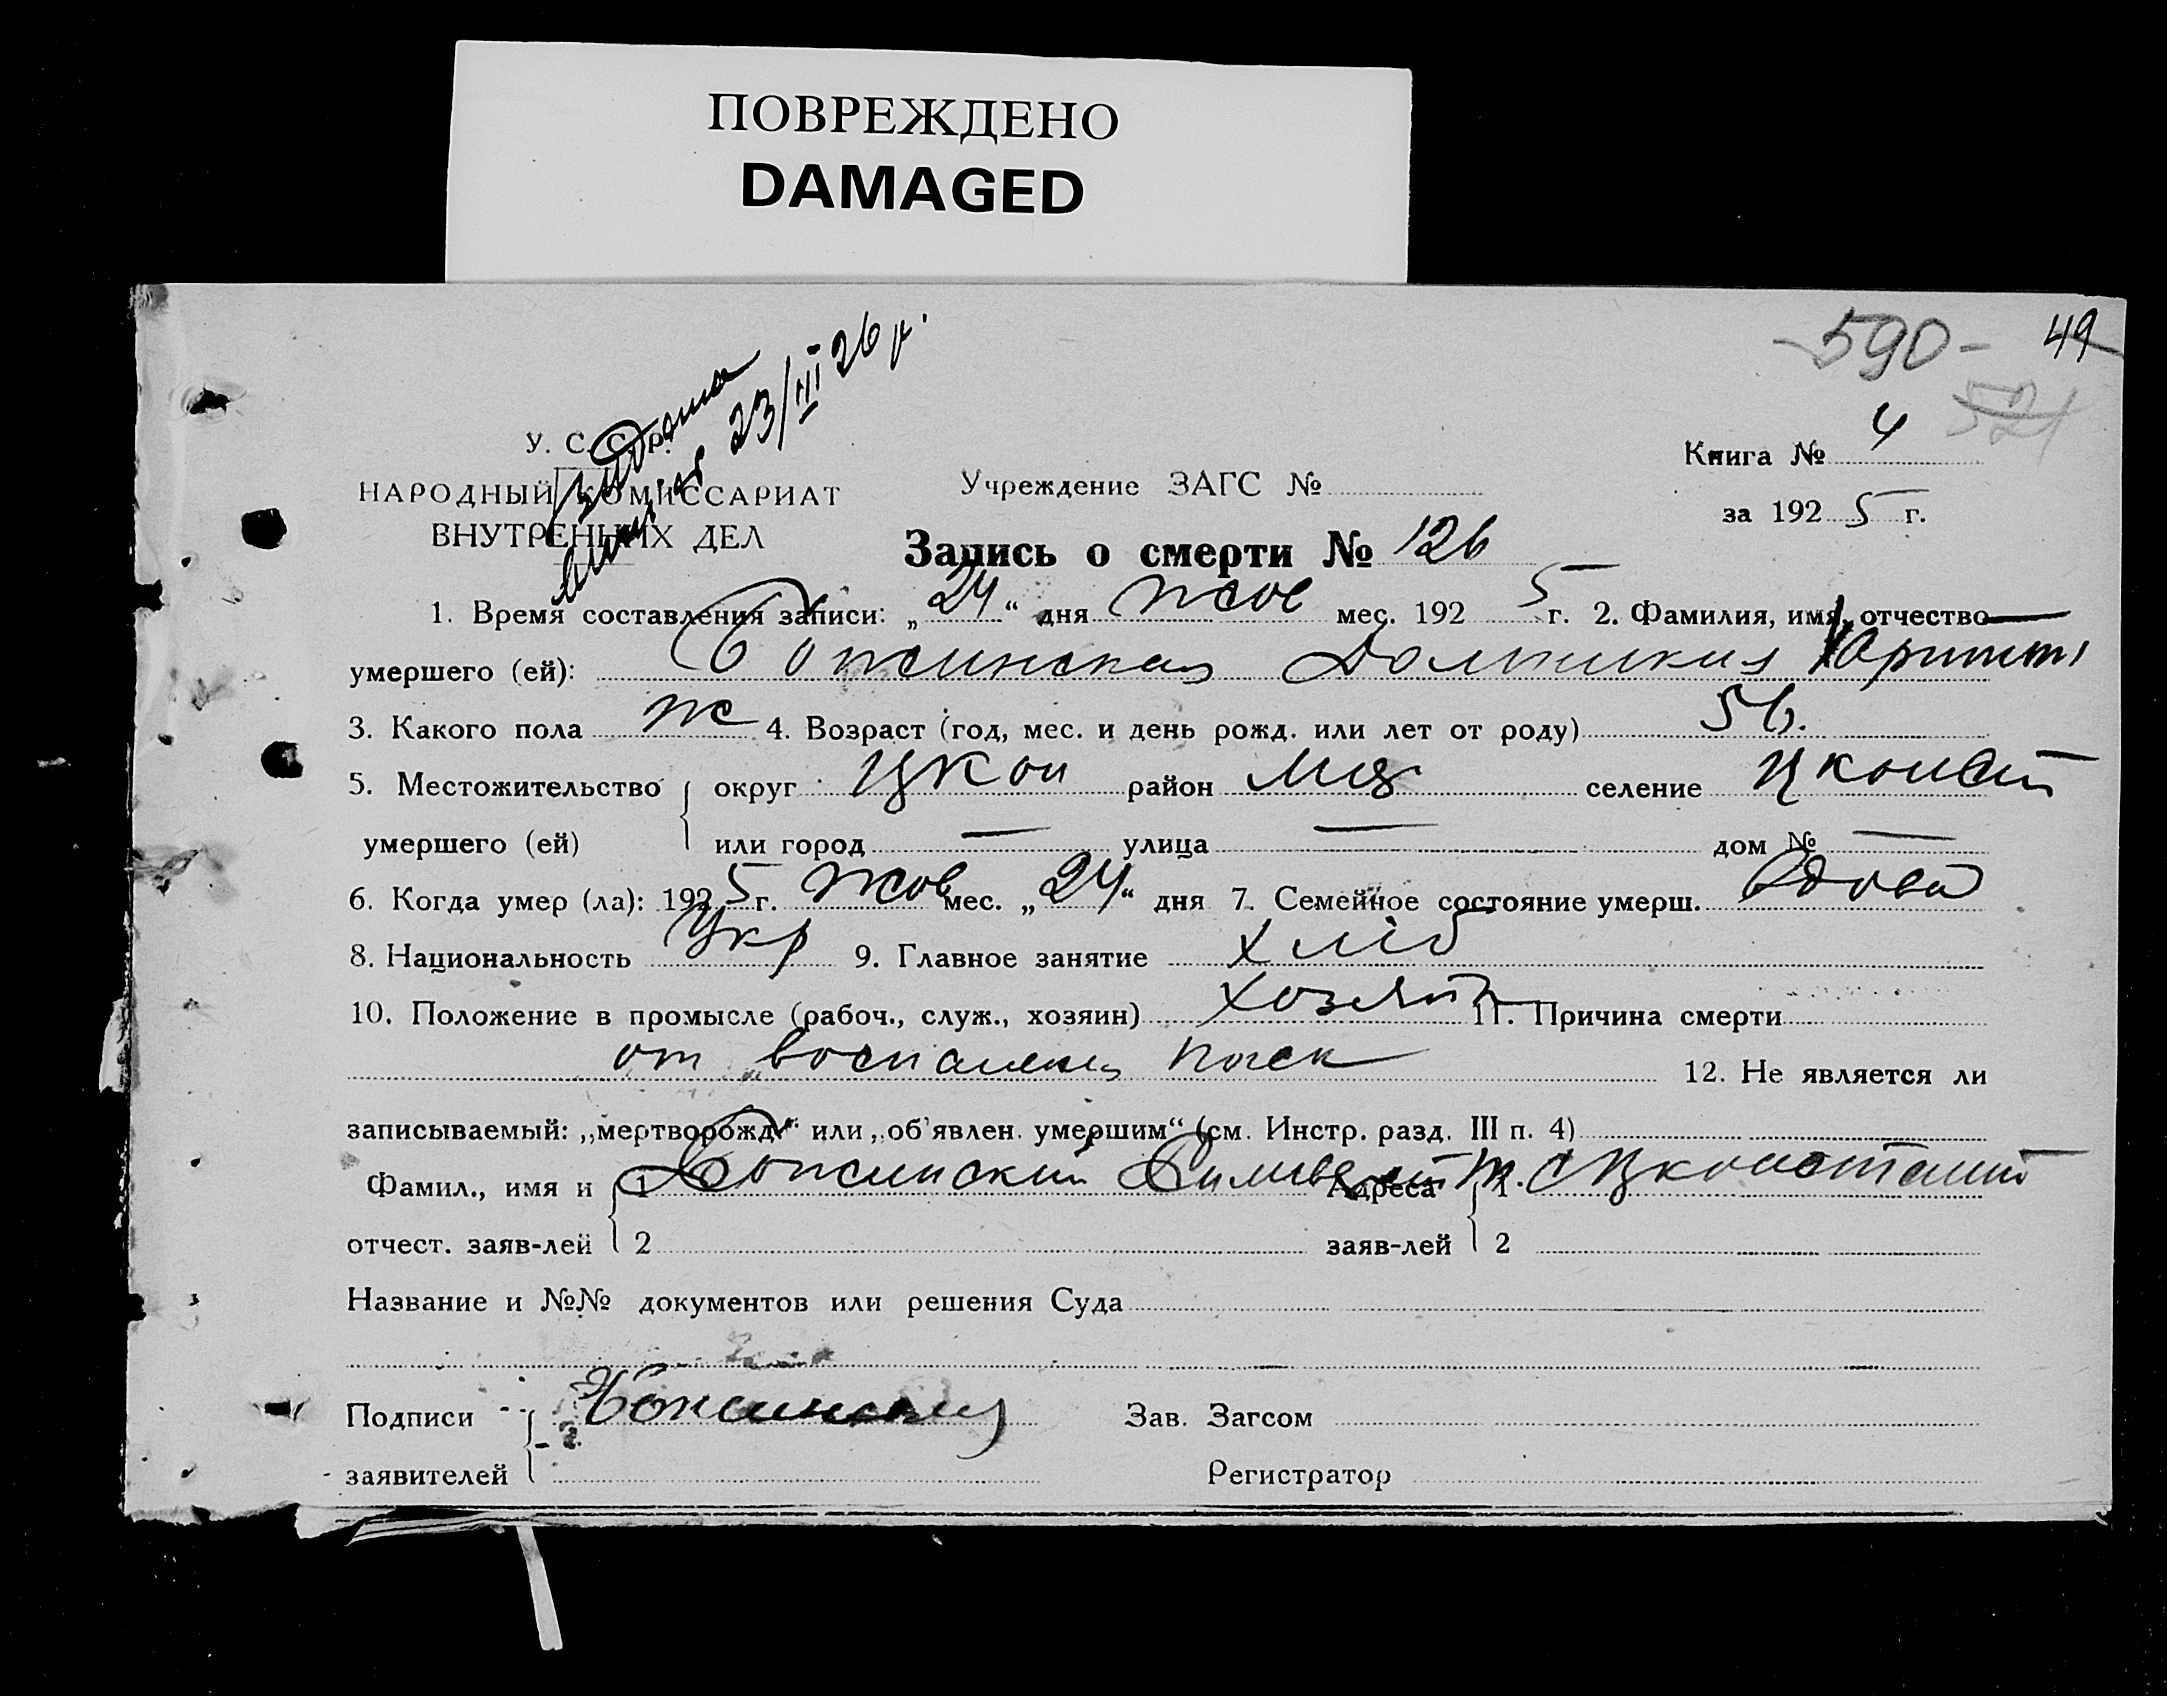 ПОВРЕЖДЕНО
DAMAGED
-590- 49
521
23/III 26 р.
У. С. С. Р.
НАРОДНЫЙ КОМИССАРИАТ
ВНУТРЕННИХ ДЕЛ
Учреждение ЗАГС №
Книга № 4
за 1925 г.
Запись о смерти № 126
1. Время составления записи: „24“ дня жов мес. 1925 г. 2. Фамилия, имя, отчество
умершего (ей):
3. Какого пола ж 4. Возраст (год, мес. и день рожд. или лет от роду) 56.
5. Местожительство округ район селение
умершего (ей) или город — улица — дом № —
6. Когда умер (ла): 1925 г. жов мес. „24“ дня 7. Семейное состояние умерш. вдова
8. Национальность Укр 9. Главное занятие хліб
10. Положение в промысле (рабоч., служ., хозяин) хозяин 11. Причина смерти
от воспаления почек 12. Не является ли
записываемый: „мертворожд.“ или „об'явлен. умершим“ (см. Инстр. разд. III п. 4)
Фамил., имя и 1 Адреса 1
отчест. заяв-лей 2 заяв-лей 2
Название и №№ документов или решения Суда
Подписи Зав. Загсом
заявителей Регистратор